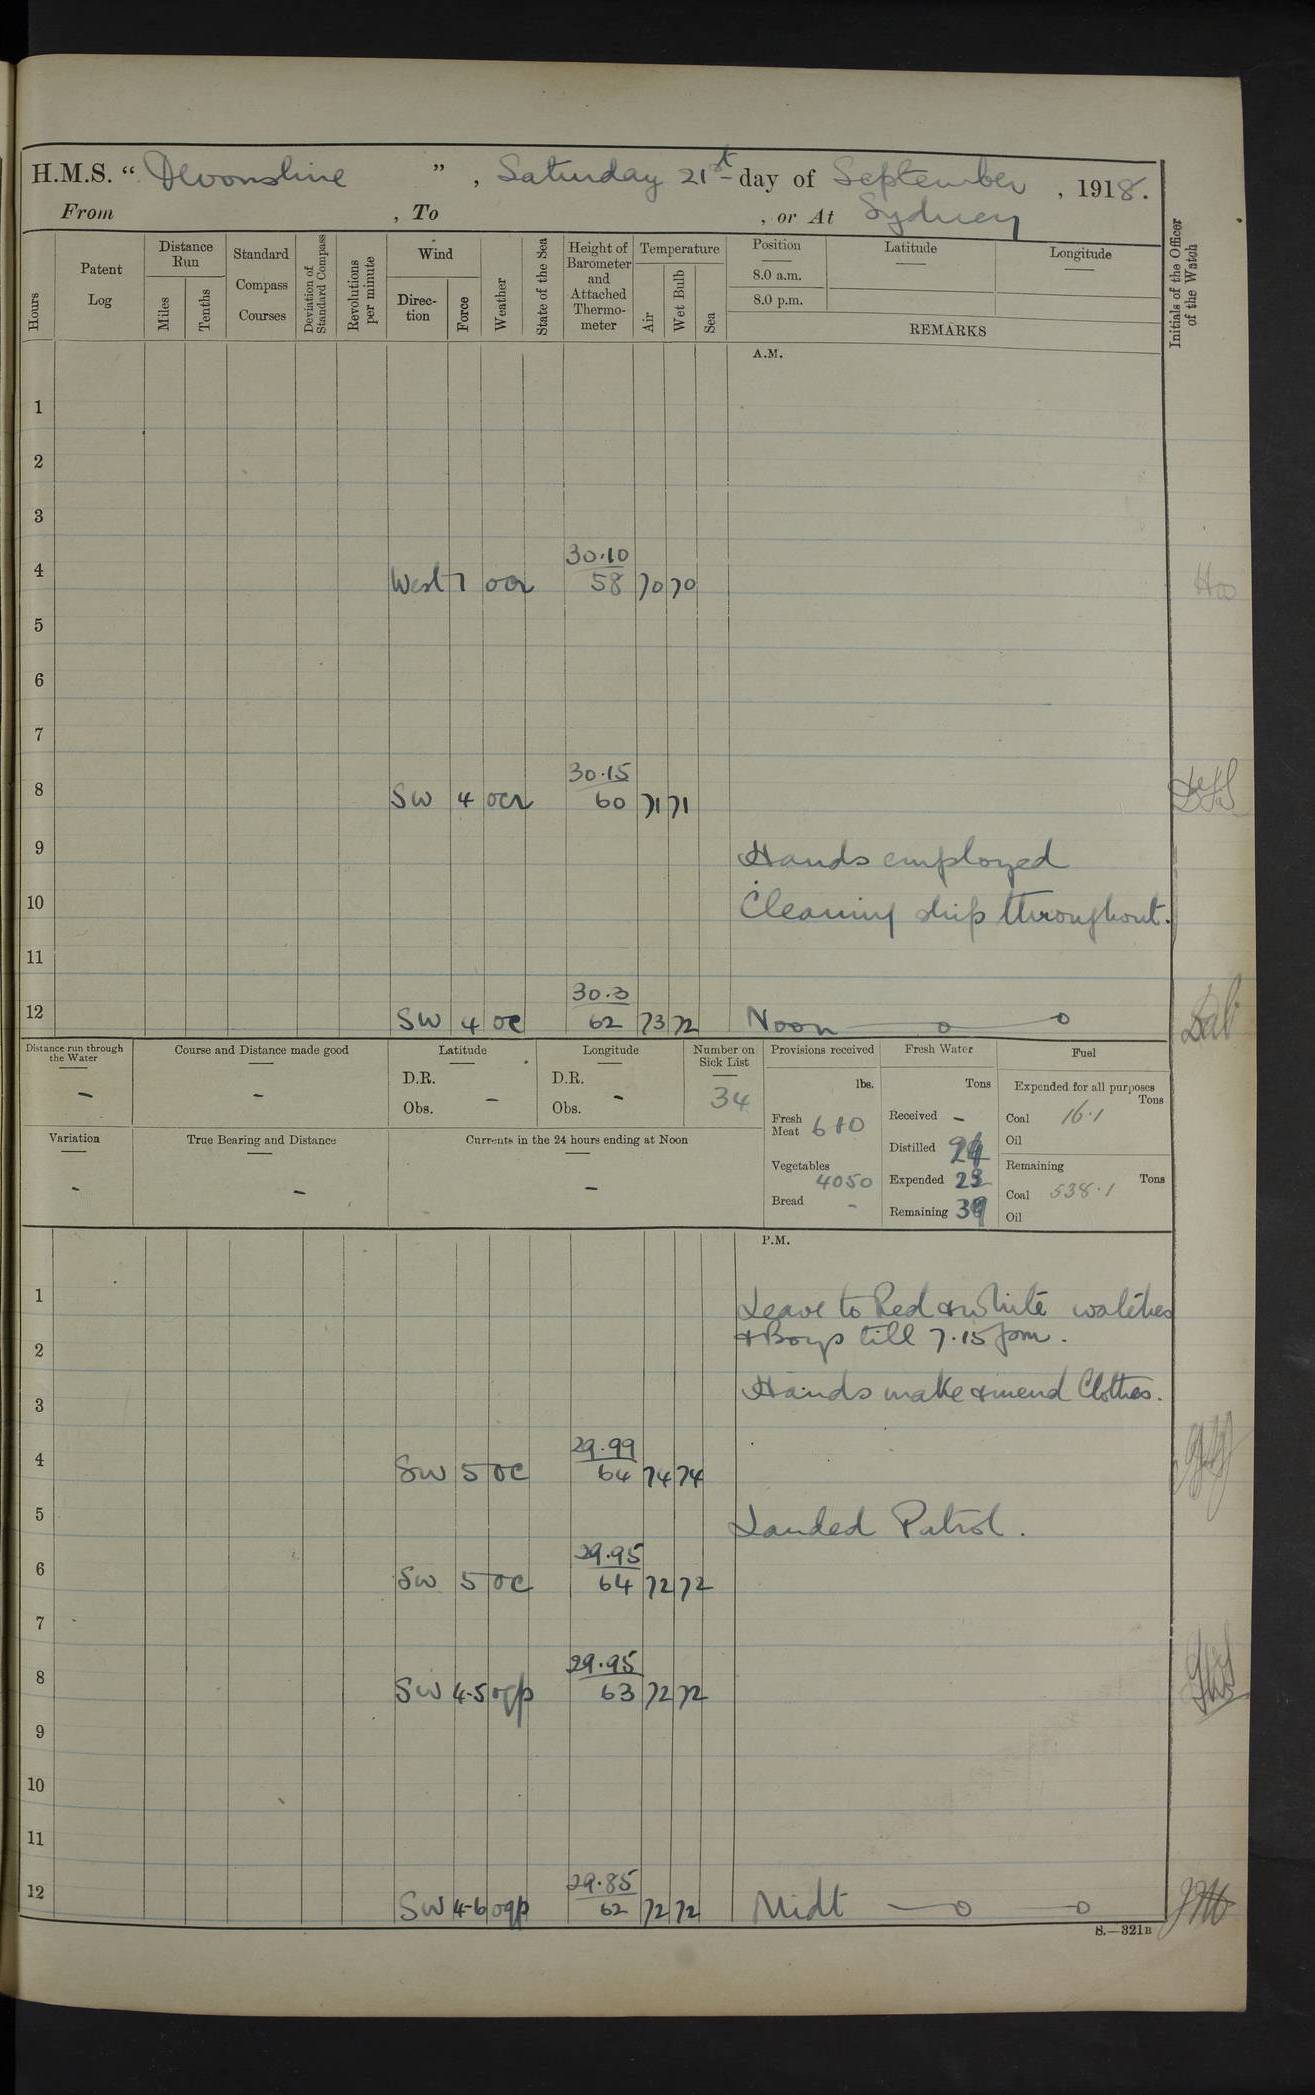 H.M.S. “ Devonshire ” , Saturday 21st day of September , 1918.
From , To , or At Sydney
Hours
Patent Log
Distance Run
Miles
Tenths
Standard Compass Courses
Deviation of Standard Compass
Revolutions per minute
Wind
Direc-tion
Force
Weather
State of the Sea
Height of Barometer and Attached Thermo-meter
Temperature
Air
Wet Bulb
Sea
Position
8.0 a.m.
8.0 p.m.
Latitude
Longitude
REMARKS
Initials of the Officer of the Watch
A.M.
1
2
3
30.10
4 West 7 ocr 58 70 70
5
6
7
30.15
8 SW 4 ocr 60 71 71
9 Hands employed
10 Cleaning ship throughout.
11
30.3
12 SW 4 oc 62 73 72 Noon
Distance run through the Water
-
Course and Distance made good
-
Latitude
D.R.
Obs. -
Longitude
D.R.
Obs. -
Number on Sick List
34
Provisions received
lbs.
Fresh Meat 680
Vegetables 4050
Bread -
Fresh Water
Tons
Received -
Distilled
Expended
Remaining
Fuel
Expended for all purposes
Tons
Coal 16.1
Oil
Remaining
Tons
Coal 538.1
Oil
Variation
-
True Bearing and Distance
-
Currents in the 24 hours ending at Noon
-
P.M.
1 Leave to Red & White watches
2 & Boys till 7.15 pm.
3 Hands make & mend Clothes.
29.99
4 SW 5 oc 64 74 74
5 Landed Patrol.
29.95
6 SW 5 oc 64 72 72
7
29.95
8 SW 4-5 oqp 63 72 72
9
10
11
29.85
12 SW 4-6 oqp 62 72 72 Midt
S.—321B